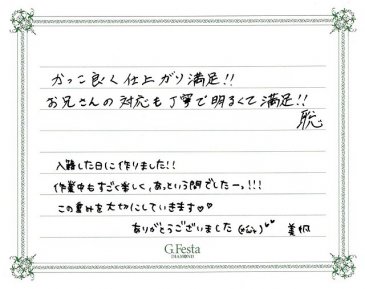 かっこ良く仕上がり満足!!
お兄さんの対応も丁寧で明るくて満足!!
聡
入籍した日に作りました!!
作業中もすごく楽しく、あっという間でしたーっ!!!
この重みを大切にしていきます♡♡
ありがとうございました ♡♡ 美帆
G.Festa
DIAMOND